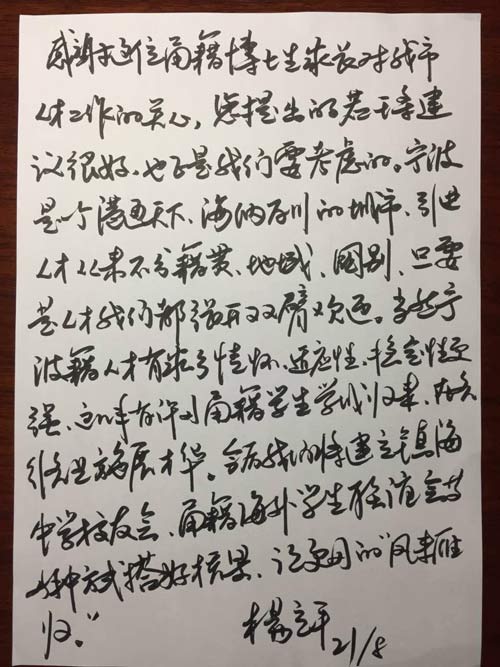 感谢这位甬籍博士生家长对我市
人才工作的关心，您提出的若干条建
议很好，也正是我们要考虑的。宁波
是一个港通天下、海纳百川的城市，引进
人才从来不分籍贯、地域、国别，只要
是人才我们都张开双臂欢迎。当然宁
波籍人才有家乡情怀、适应性、稳定性更
强，这几年有许多甬籍学生学成归来，
施展才华。今后我们将建立镇海
中学校友会、甬籍海外学生联谊会等
多种方式搭好桥梁，让更多的“凤来雁
归。”
杨立平 21/8